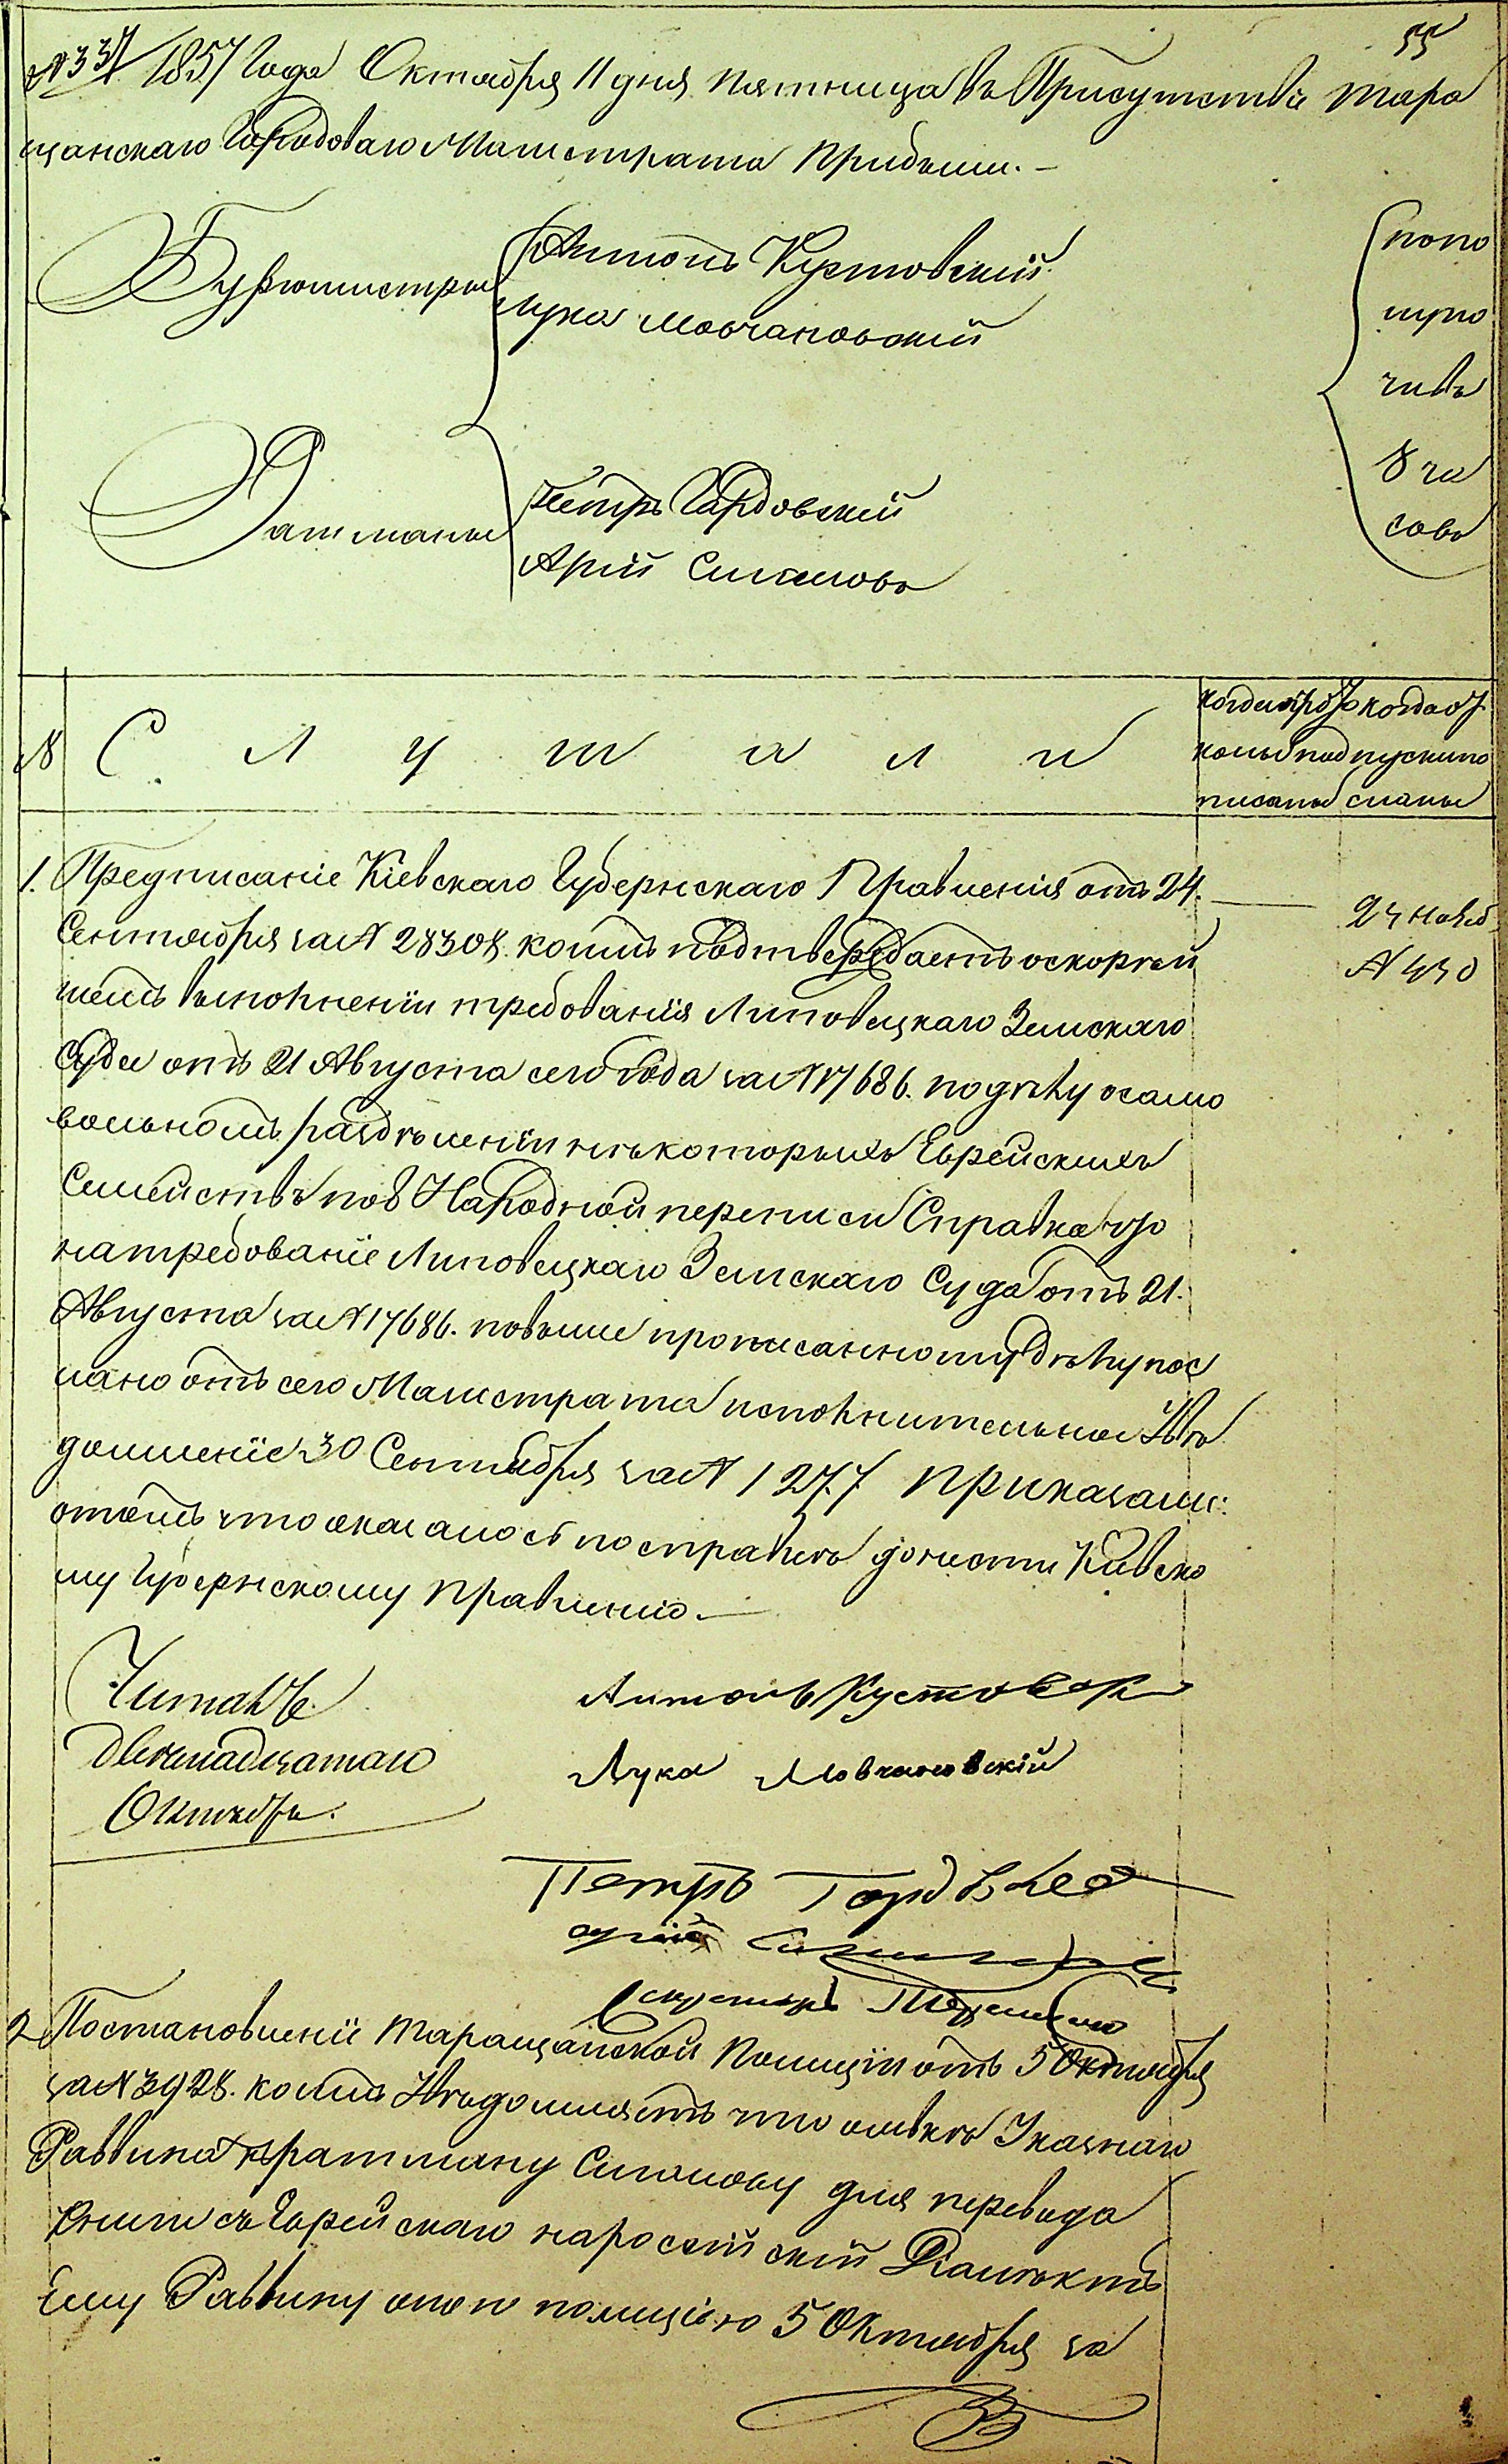 55
№ 337 1857 Года Октября 11 дня пятница въ Присутствіе Тара
щанскаго Городоваго Магистрата прибыли. —
Бургомистры
Антонъ Кустовскій
Лука Мовчановскій
Ратманы
Петръ Гордовскій
Арій Сигаловъ
попо
луно
чивъ
8 ча
совъ
№ С л у ш а л и
1. Предписаніе Кіевскаго Губернскаго Правленія отъ 24.
Сентября за № 28308. коимъ подтверждаетъ о скорѣй
шемъ выполненіи требованія Липовецкаго Земскаго
Суда отъ 21 Августа сего года за № 17686. по дѣлу о само
вольномъ раздѣленіи нѣкоторыхъ Еврейскихъ
Семействъ по 8 Народной переписи Справка что
на требованіе Липовецкаго Земскаго Суда отъ 21.
Августа за № 17686. по выше прописанному дѣлу пос
лано отъ сего Магистрата исполнительное Увѣ
домленіе 30 Сентября за № 1277. приказали:
о томъ что оказалось по справкѣ донести Кіевско
му Губернскому Правленію. —
24 нояб
№ 430
Читалъ
двенадцатаго
Октября.
Антонъ Кустовскі
Лука Мовчановскій
Петръ
Арій
Секретарь
2 Постановленіе Таращанской Полиціи отъ 5 Октября
за № 3928. коимъ Увѣдомляетъ что о явкѣ Указнаго
Раввина къ ратману Сигалову для перевода
книги съ Еврейскаго на россійскій Діалектъ
Ему Раввину оною полиціею 5 Октября за